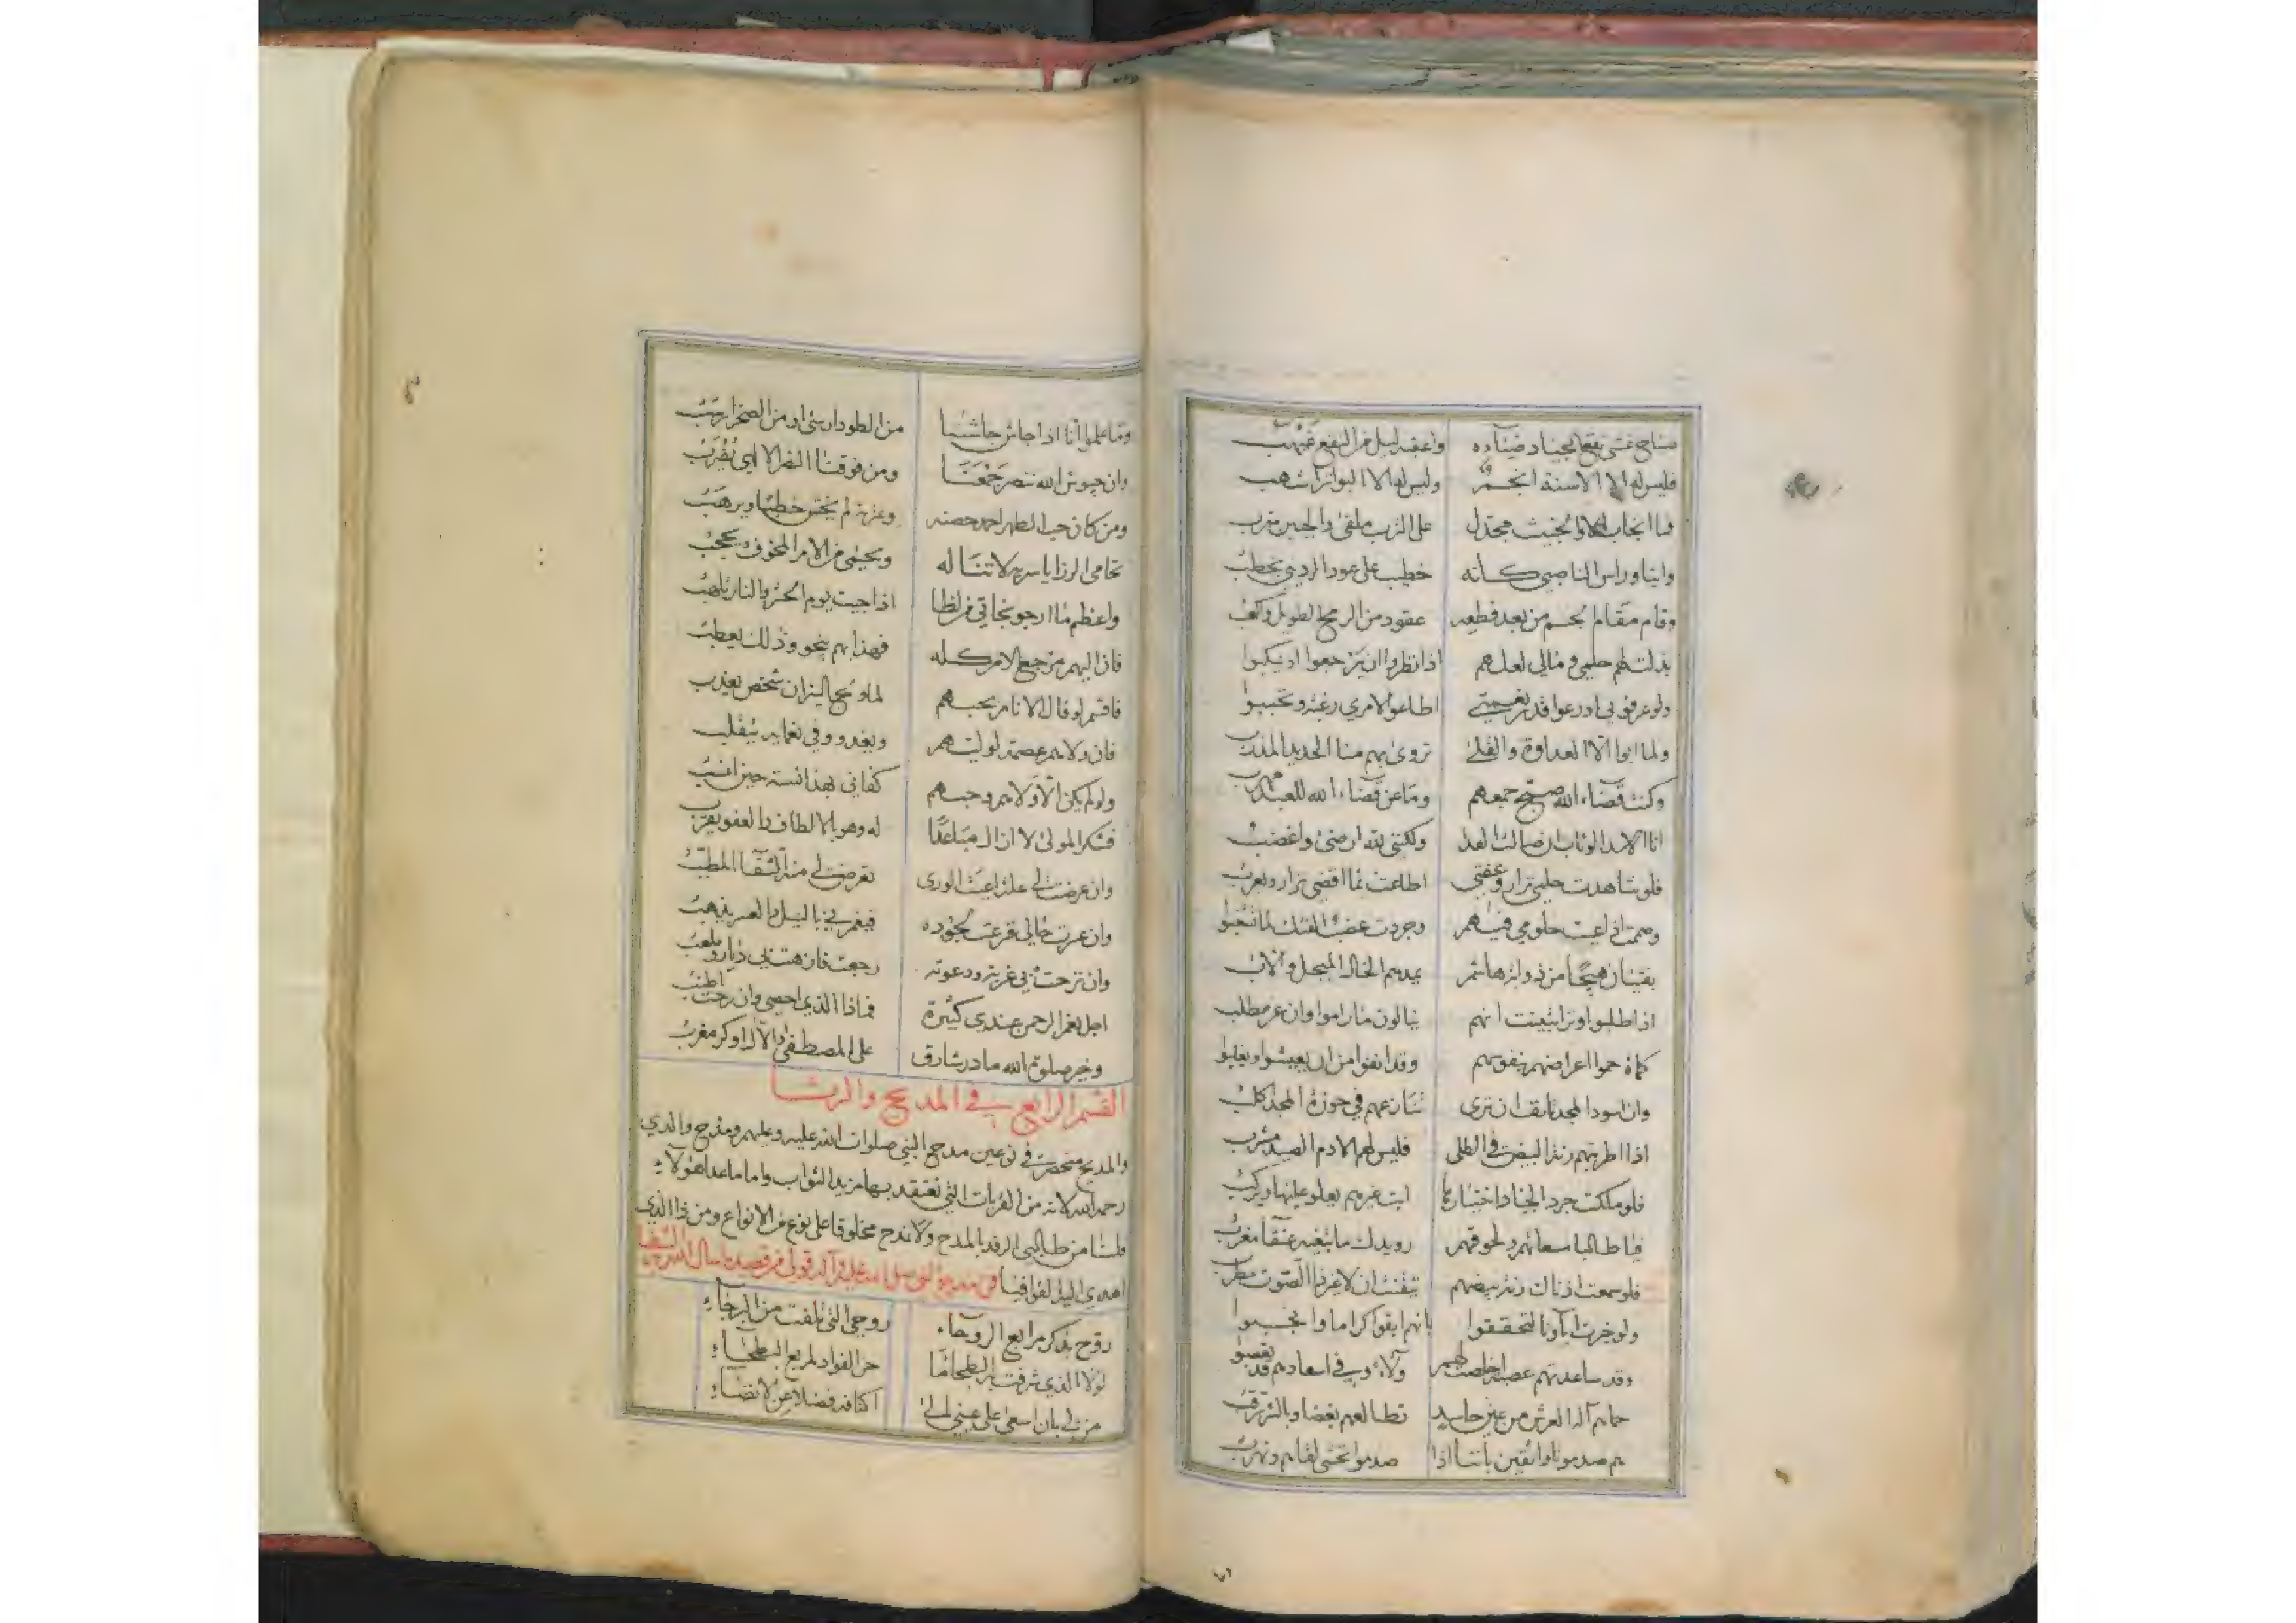 فليس له الا الاسنة انجم وليس له الا البواتر اشهب
على الترب ملقى والجبين مترب
واينا وراس الناصبي كأنه خطيب على عود الرديني يخطب
وقام مقام الجسم من بعد قطعه عقود من الرمح الطويل واكعب
بذلت لهم حلمي ومالي لعلهم اذا نظروا ان يرجعوا او ينكبوا
اطاعوا لامري رغبة وتحببوا
ولما ابوا الا العداوة والقلى تروى بهم منا الحديد المذرب
وكنت قضاء الله صبح جمعهم وما عن قضاء الله للعبد مهرب
انا الاسد الوثاب ان صالت العدا ولكنني لله ارضى واغضب
فلو شاهدت حلمي نزار وعفتي اطاعت لما اقضي نزار ويعرب
وجردت عضب الفتك لما تحبوا
يمدهم الخال المبجل والاب
اذا طلبوا وترا تبينت انهم ينالون ما راموا وان عز مطلب
كماة حموا اعراضهم بنفوسهم وقد انفوا من ان يعيشوا ويغلبوا
وان اسود المجد تانف ان ترى تنازعهم في حوزة المجد اكلب
اذا اطربتهم رنة البيض في الطلى فليس لهم الا دم الصيد مشرب
فلو ملكت جرد الجياد اختيارها ابت غيرهم يعلو عليها ويركب
فيا طالبا مسعاتهم ولحوقهم رويدك ما تبغيه عنقاء مغرب
فلو سمعت اذناك رنة بيضهم تيقنت ان لا غير ذا الصوت مطرب
ولو خبرت اباؤنا لتحققوا بانهم ابقوا كراما وانجبوا
وقد ساعدتهم عصبة اخلصت لهم ولاء وفي اسعادهم قد تعصبوا
حماهم اله العرش من عين حاسد تطالعهم بغضا وبالشر ترقب
هم صدمونا واثقين باننا اذا صدموا نخشى لقاهم ونهرب
وما علموا انا اذا جاش جاشنا من الطود ارسى او من الصخر اصلب
وان جيوش الله تنصر جمعنا ومن فوقنا النصر الالهي يقرب
ومن كان حب الطهر احمد حصنه وعترته لم يخش خطبا ويرهب
تحامى الرزايا سربه لا تناله ويحمى من الامر المخوف ويحجب
واعظم ما ارجو نجاتي من لظى اذا جيت يوم الحشر والنار تلهب
فان اليهم مرجع الامر كله فهذا بهم ينجو وذلك يعطب
فاقسم لو قال الانام بحبهم لما ويج النيران شخص يعذب
فان ولاهم عصمة لوليهم ويغدو وفي نعمائه يتقلب
ولو لم يكن الا ولاهم وحبهم كفاني بهذا نسبة حين انسب
فشكرا لمولى لا ازال مباعدا له وهو بالالطاف والعفو يقرب
وان عرضت لي علة اعيت الورى تعرض لي منه الشفاء المطبب
وان عزت حالي قرعت لجوده فيغمرني بالنيل والعسر يذهب
وان نزحت بي غربة ودعوته رجعت فازهت بي ديار وملعب
اجل نعم الرحمن عندي كثيرة فماذا الذي احصي وان رحت اطنب
وخير صلوة الله ما در شارق على المصطفى والآل او كر مغرب
القسم الرابع في المديح والرثا
والمديح منحصر في نوعين مدح النبي صلوات الله عليه وعليهم ومدح والدي
رحمه الله لانه من القربات التي نعتقد بها مزيد الثواب واما ما عدا هؤلاء
فلسنا من طالبي الرفد بالمدح ولا نمدح مخلوقا على نوع من الانواع ومن ذا الذي
اهدي اليه القوافيا
روح بذكر مرابع الروحاء روحي التي تلفت من البرحاء
لولا الذي شرفت به البطحاء ما حن الفواد لمربع البطحاء
من لي بان اسعى على عيني الى اكنافه فضلا عن الانضاء